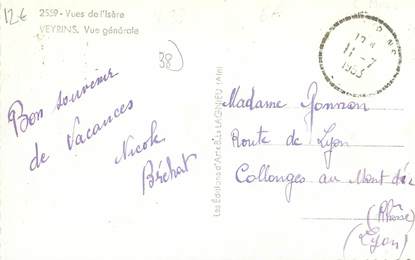 12€
2559 - Vues de l'Isère
VEYRINS. Vue générale
38
11-7
1953
Bon souvenir
de Vacances
Nicole
Bréchat
Les Editions d'Art
LAGNIEU (Ain)
Madame
Route de Lyon
Collonges au Mont d'or
(Rhône)
(Lyon)